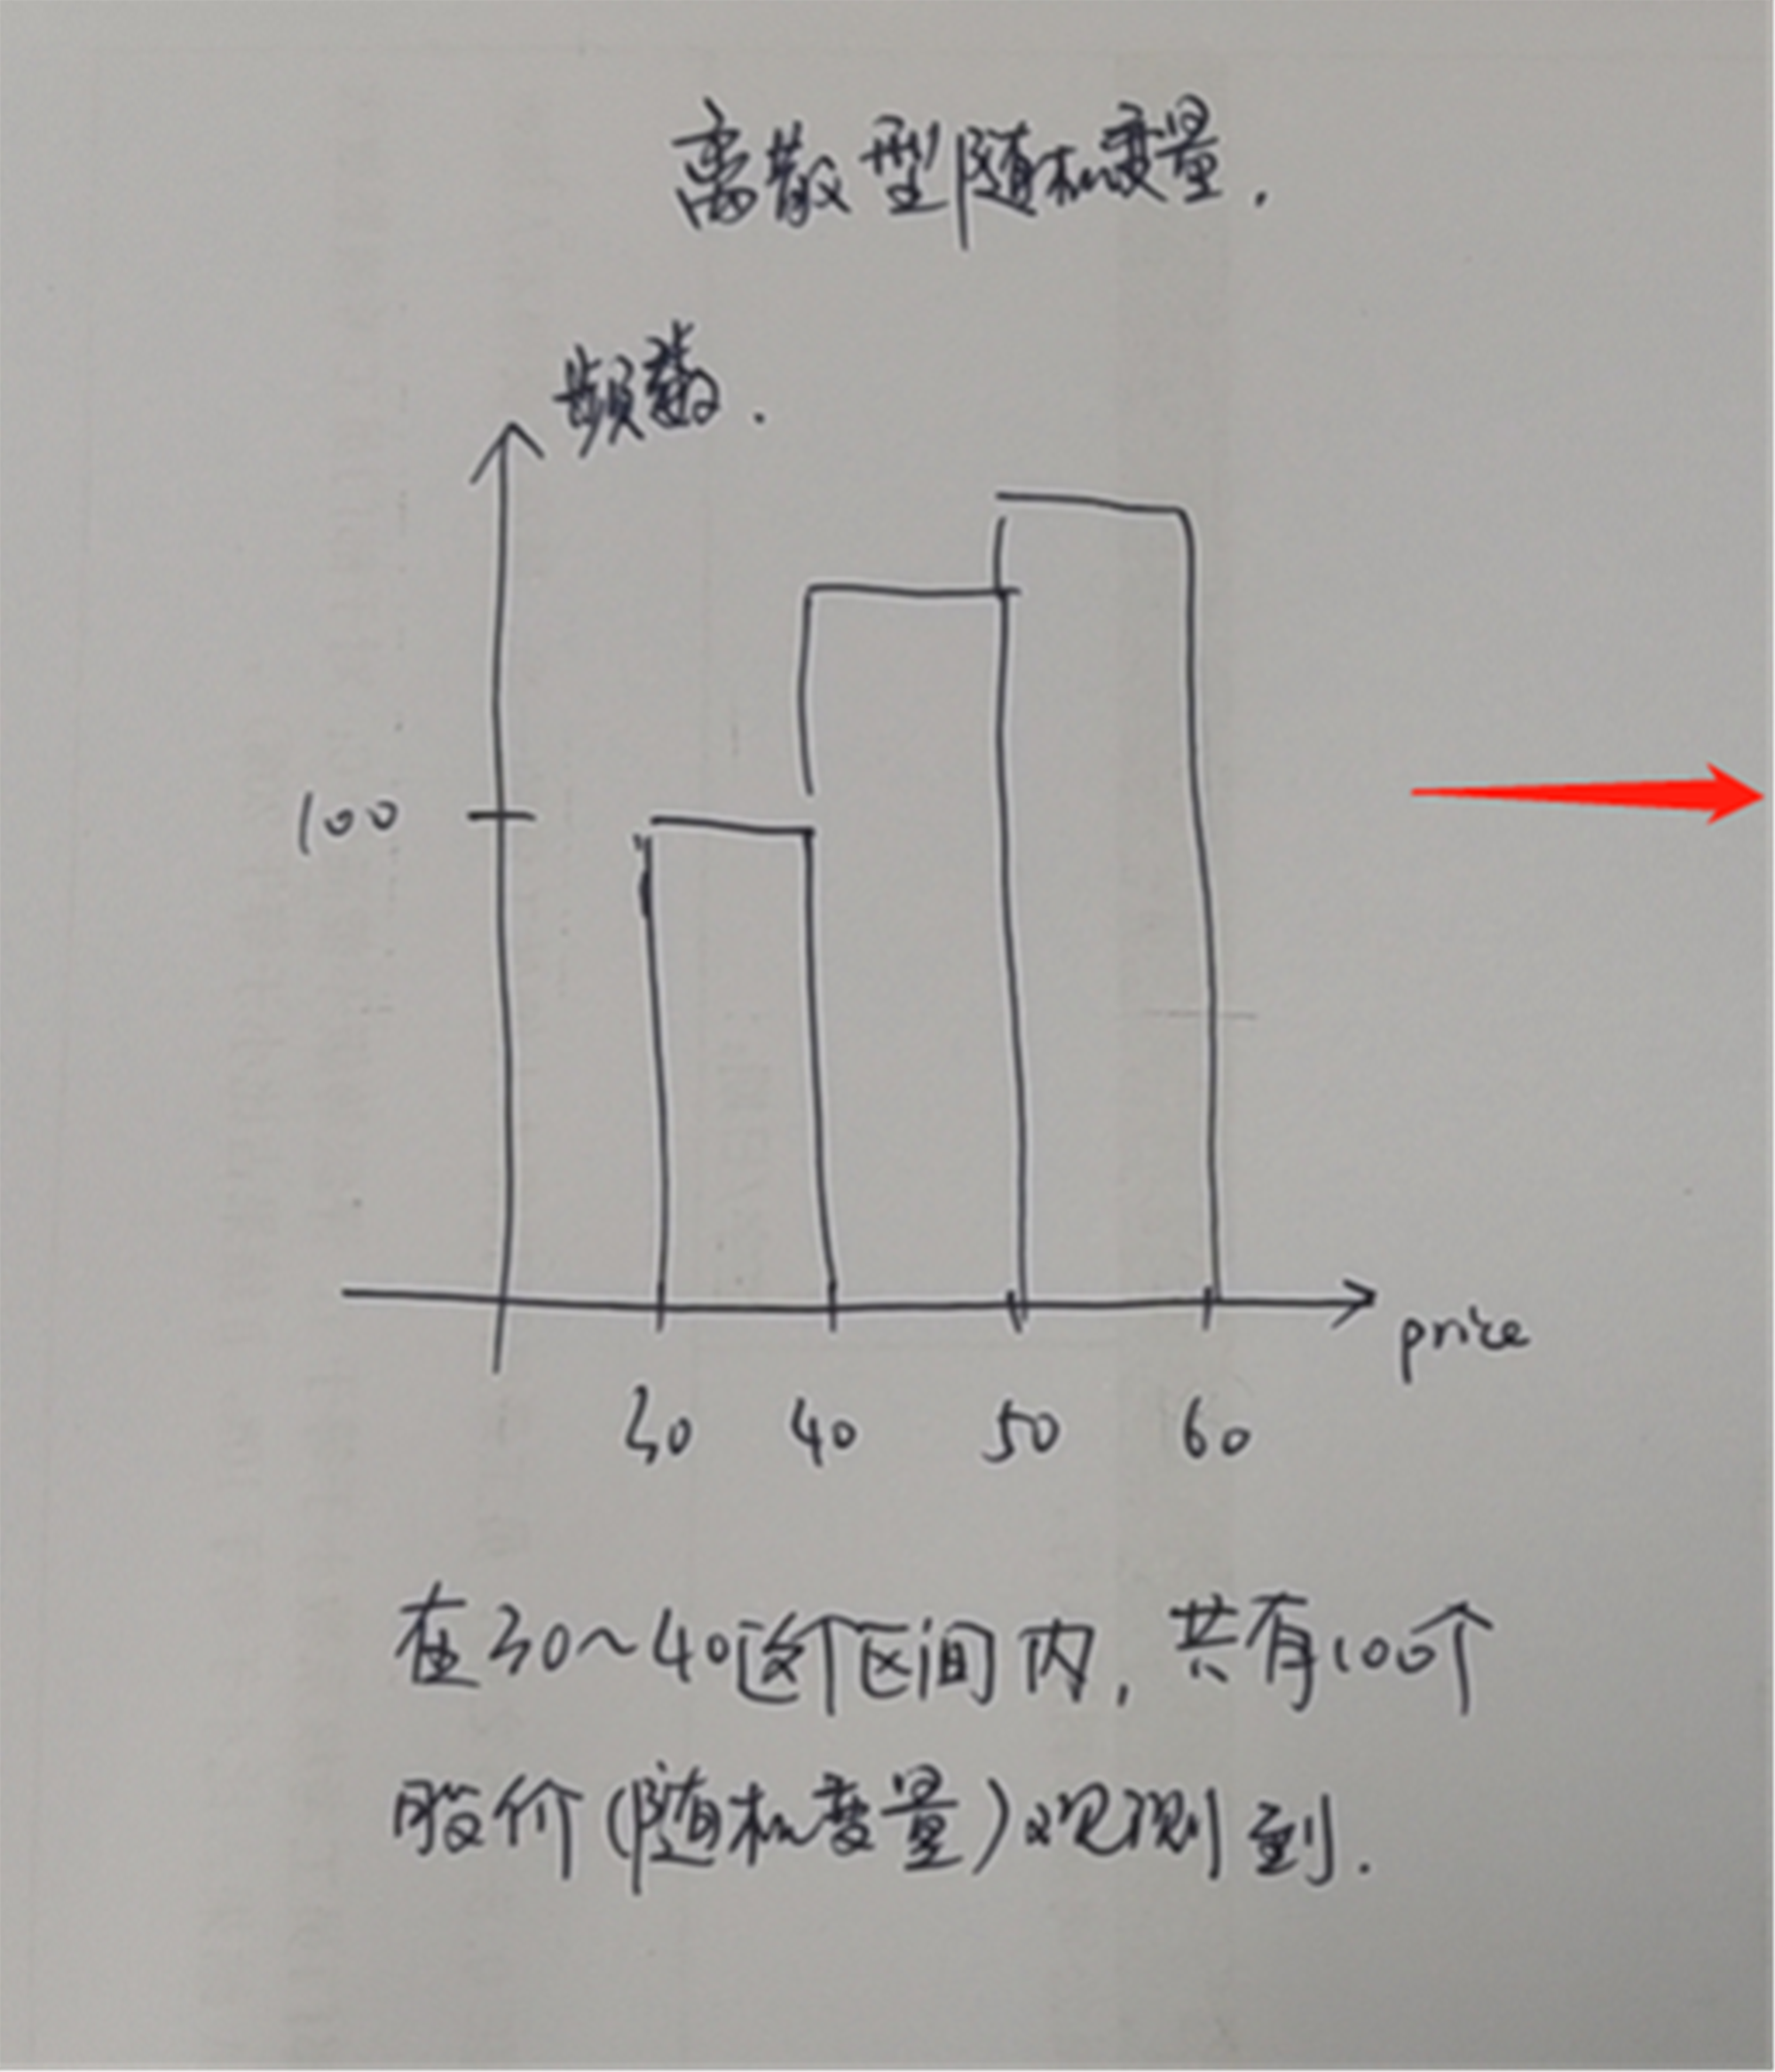 离散型随机变量.
频数.
100
price
30 40 50 60
在30~40这个区间内, 共有100个
股价(随机变量)观测到.